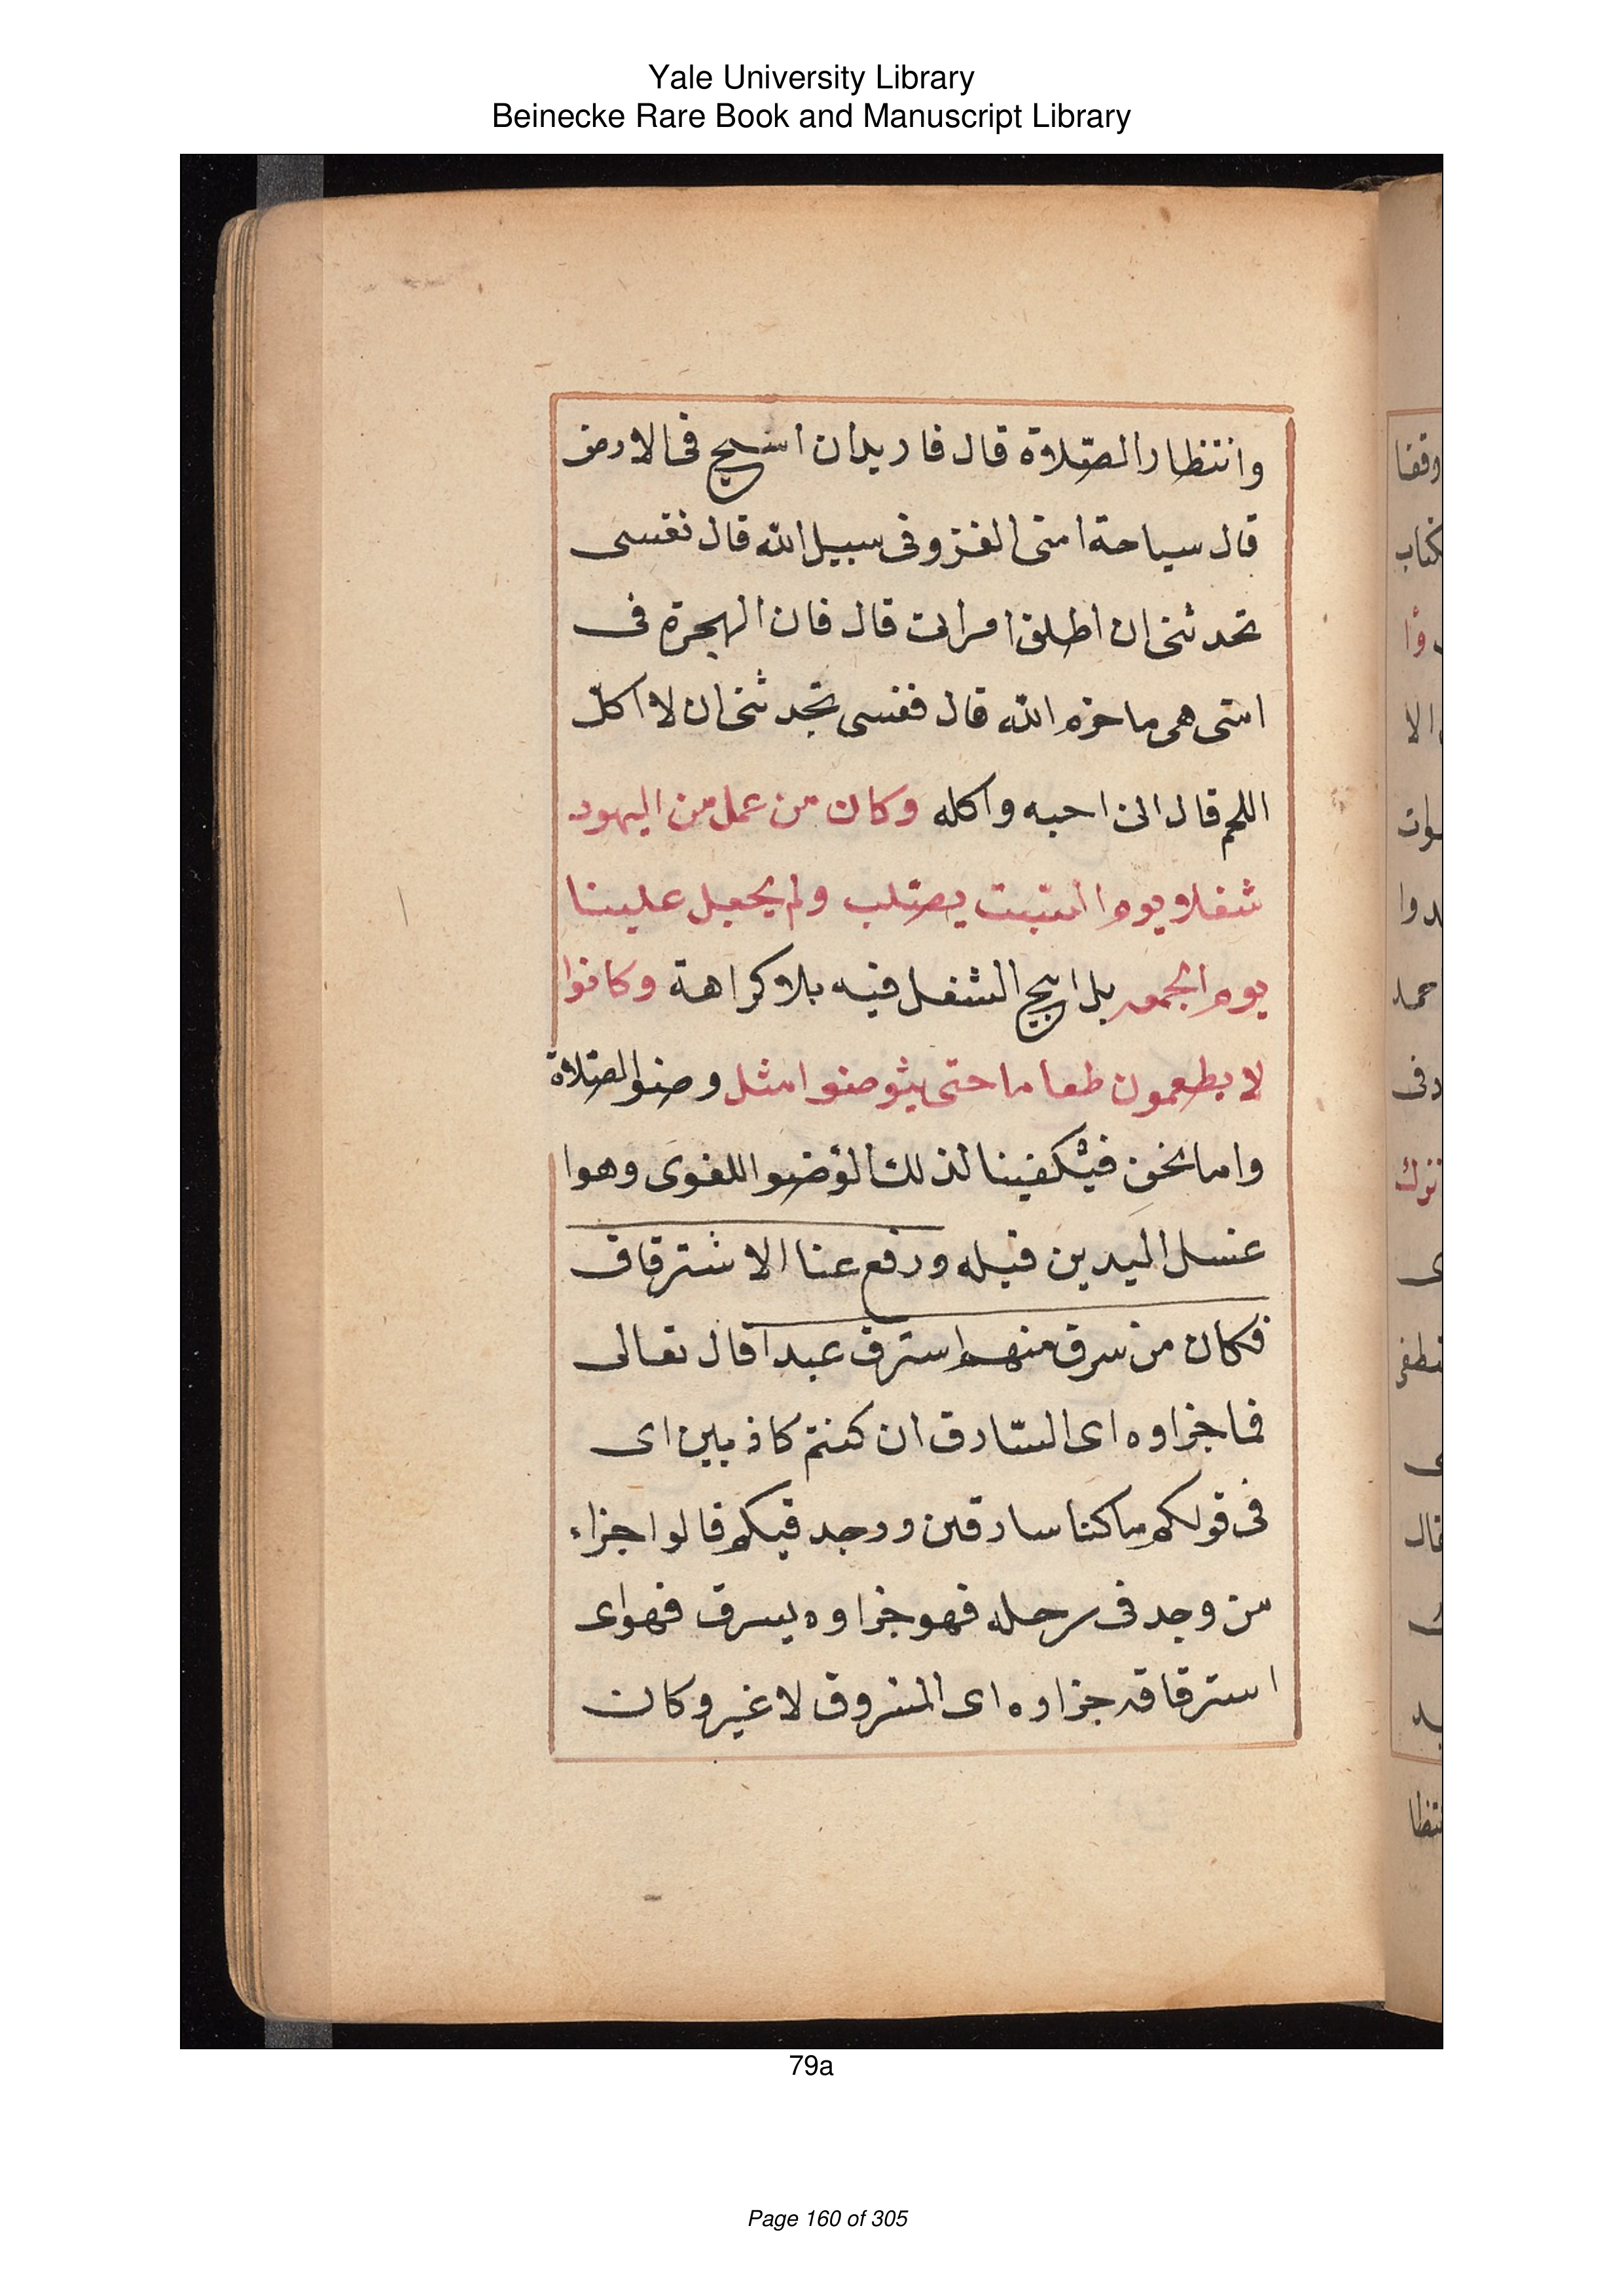 Yale University Library
Beinecke Rare Book and Manuscript Library
وانتظار الصّلاة قال فاريد ان اسيح فى الارض
قال سياحة امتى الغزو فى سبيل الله قال نفسى
تحدثنى ان اطلق امراتى قال فان الهجرة فى
امتى هى ما حرم الله قال فنفسى تحدثنى ان لا اكل
اللحم قال انى احبه واكله وكان من عمل من اليهود
شغلا يوم السّبت يصّلب ولم يجعل علينا
يوم الجمعه بل ابيح الشغل فيه بلا كراهة وكانوا
لا يطعمون طعاما حتى يتوضوا مثل وضو الصّلاة
واما نحن فيكفينا لذلك الوضو اللغوى وهوا
غسل اليدين قبله ورفع عنا الاشترقاق
فكان من سرق منهم استرق عبدا قال تعالى
فما جزاوه اى السّارق ان كنتم كاذبين اى
فى قولكم ما كنا سارقين ووجد فيكم قالوا جزاء
من وجد فى رحله فهو جزاوه يسرق فهو اى
استرقاقه جزاوه اى المسروق لا غير وكان
وقفنا
كتاب
الا
دوا
حمد
دفى
نزك
قال
نتظا
79a
Page 160 of 305